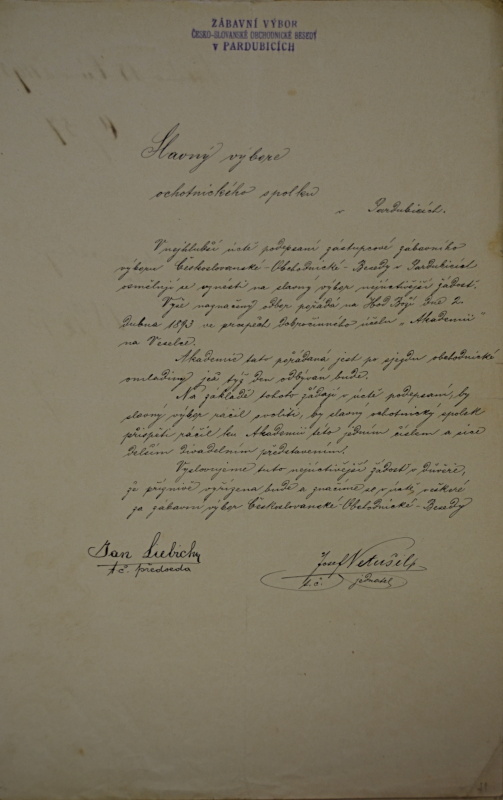 ZÁBAVNÍ VÝBOR
ČESKO-SLOVANSKÉ OBCHODNICKÉ BESEDY
V PARDUBICÍCH
Slavný výbore
ochotnického spolku
v Pardubicích.
V nejhlubší úctě podepsaní zástupcové zábavního
výboru Českoslovanské-Obchodnické-Besedy v Pardubicích
osmělují se vznésti na slavný výbor nejuctivější žádost.
Výše naznačený odbor pořádá na Hod Boží dne 2.
dubna 1893 ve prospěch dobročinného účelu „Akademii“
na Veselce.
Akademie tato pořádaná jest po sjezdu obchodnické
omladiny jež týž den odbýván bude.
Na základě tohoto žádají v úctě podepsaní, by
slavný výbor ráčil svoliti, by slavný ochotnický spolek
přispěti ráčil ku Akademii této jedním číslem a sice
delším divadelním představením.
Vyslovujíce tuto nejuctivější žádost v důvěře,
že příznivě vyřízena bude a značíme se v úctě veškeré
za zábavní výbor Českoslovanské-Obchodnické-Besedy
Jan Liebich
t. č. předseda
Josef Netušil
t. č. jednatel